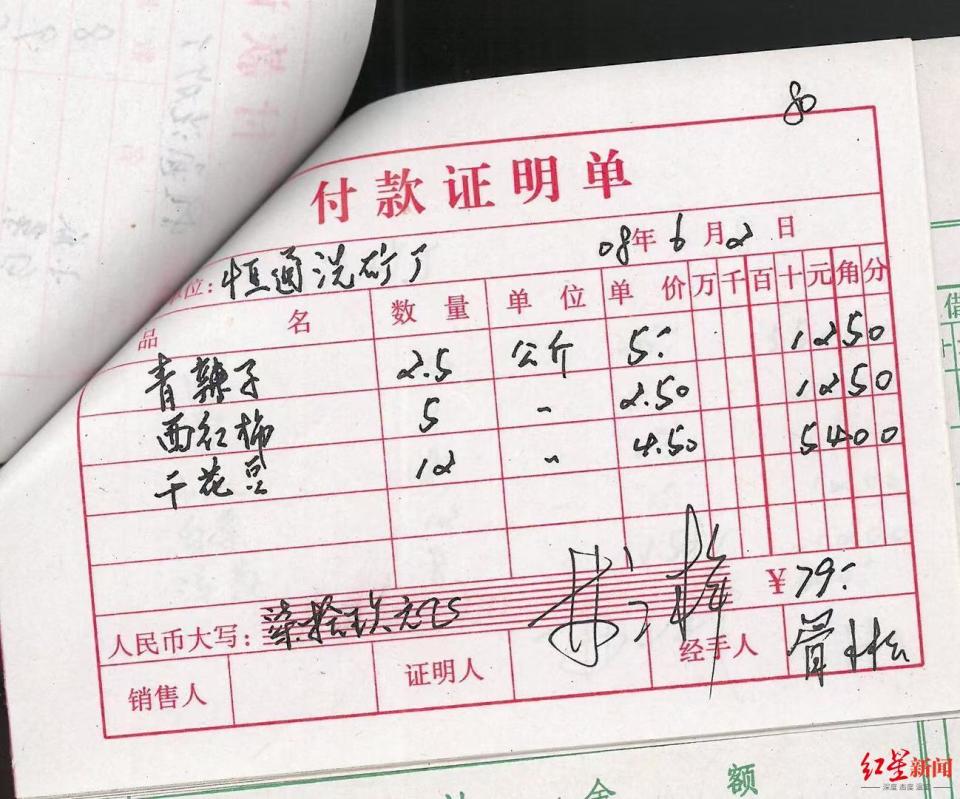 80
付款证明单
单位：恒通洗矿厂 08年6月2日
品名 数量 单位 单价 万 千 百 十 元 角 分
青辣子 2.5 公斤 5: 1 2 5 0
西红柿 5 〃 2.50 1 2 5 0
干花豆 12 〃 4.50 5 4 0 0
人民币大写：柒拾玖元正 ¥79:
销售人 证明人 经手人
金 额
红星新闻
深度 态度 温度